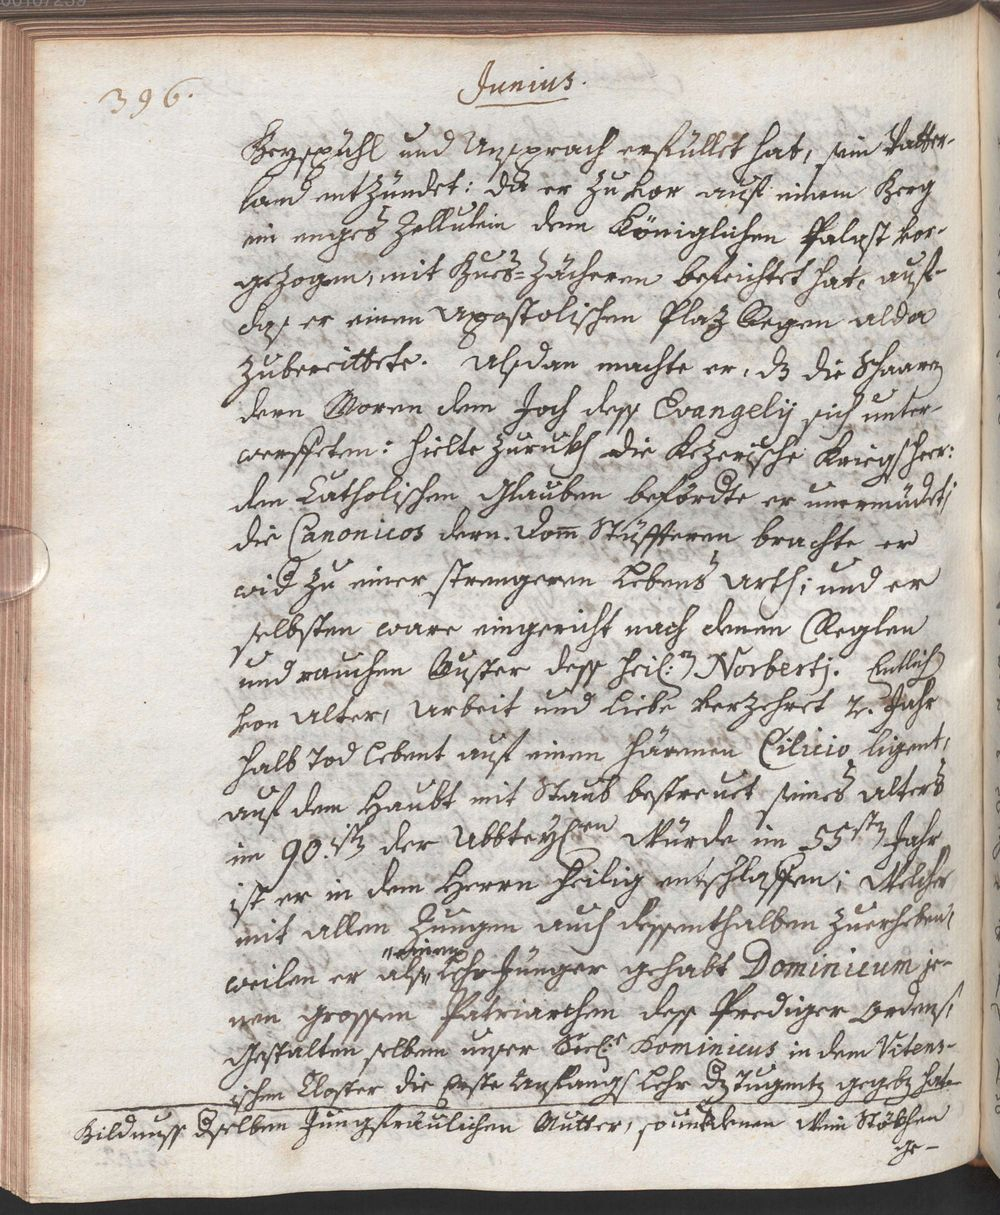 00107239
396.
Junius.
Beyspühl und Ansprach erfüllet hat, sein Vatter-
land entzündet: da er zuvor auf einem Berg
ein enges Zellulein dem Königlichen Palast vor-
gezogen, mit Bues-Zächeren befeichtet hat, auf-
das er einen Apostolischen Plaz Regen alda
zubereittete. Alsdan machte er, dz die Schaaren
deren Moren dem Joch dess Evangelij sich unter-
werffeten: hielte zurukh die Kezerische Kriegsheer:
den Catholischen Glauben befördte er unermüdet;
die Canonicos deren Dom Stüffteren brachte er
wid zu einer strengeren Lebens Arth; und er
selbsten ware eingericht nach denen Reglen
und rauchen Muster dess heil:en Norbertj. Entlich
von Alter, Arbeit und Liebe verzehret 2. Jahr
halb Tod lebent auf einem härenen Cilicio ligent,
auf dem Haubt mit Staub bestreuet seines Alters
im 90.isten der Abbteylichen Würde im 55sten Jahr
ist er in dem Herrn heilig entschlaffen; Welcher
mit allen Zungen auch dessenthalben zuerheben,
weilen er als einen Lehr-Jünger gehabt Dominicum je-
nen grossen Patriarchen dess Prediger Ordens,
Gestalten selbem unser Seel:e Dominicus in dem Vitens-
ischen Closter die Erste Anfangs Lehr dz Tugentz gegebz hat.
Bildnuss dselben Jungfräulichen Mutter, so und denen Wein Stökhen
ge-